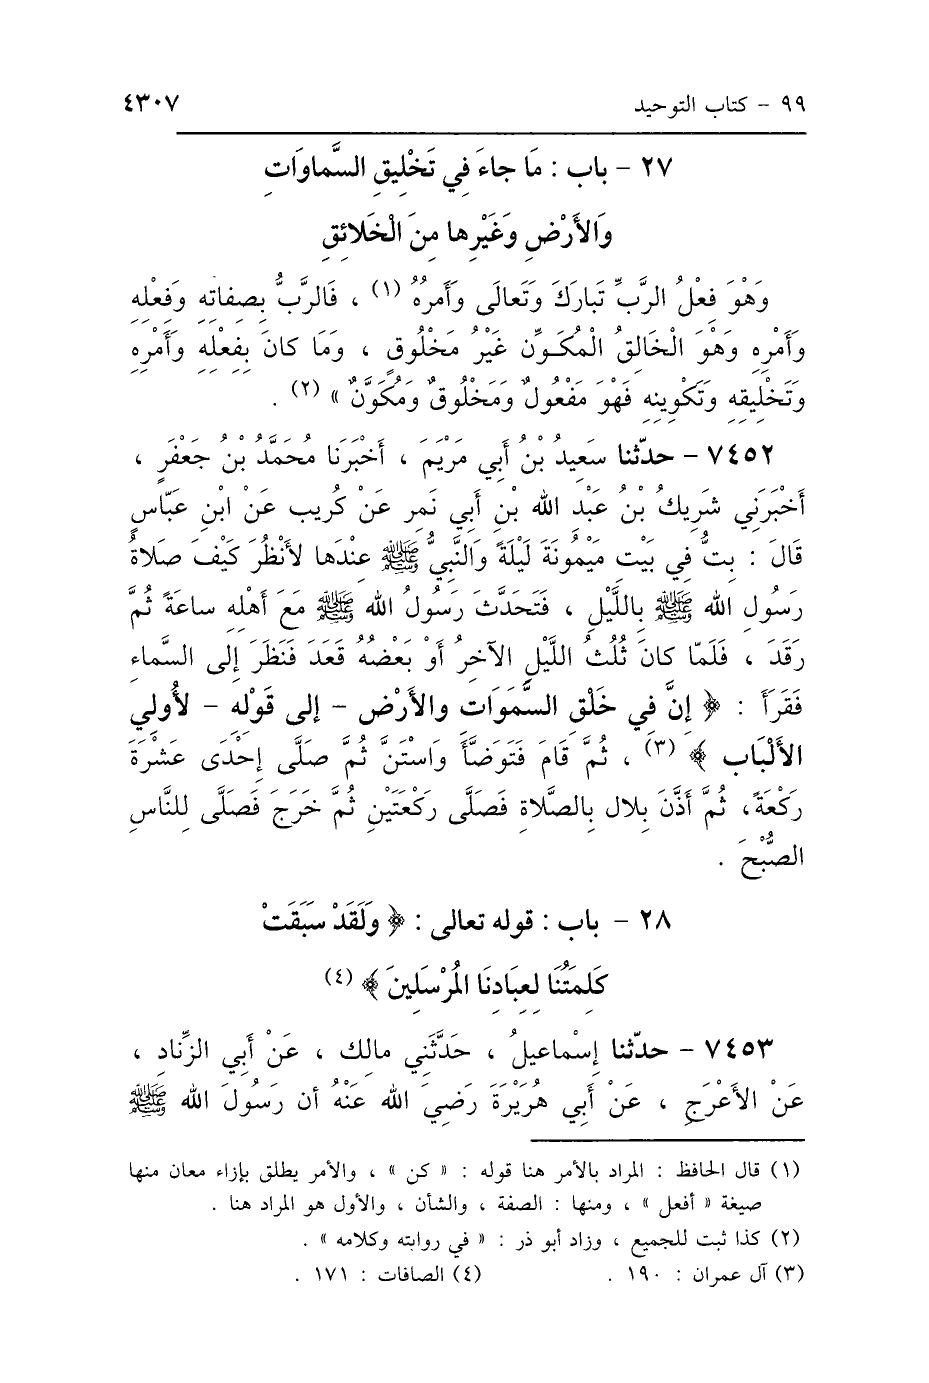 ٩٩ - كتاب التوحيد ٤٣٠٧
٢٧ - باب : مَا جاءَ فِي تَخْلِيقِ السَّماوَاتِ
وَالأَرْضِ وَغَيْرِها مِنَ الْخَلائِقِ
وَهْوَ فِعْلُ الرَّبِّ تَبارَكَ وَتَعالَى وَأَمرُهُ (١) ، فَالرَّبُّ بِصِفاتِهِ وَفِعْلِهِ
وَأَمْرِهِ وَهْوَ الْخَالِقُ الْمُكَوِّنُ غَيْرُ مَخْلُوقٍ ، وَمَا كانَ بِفِعْلِهِ وَأَمْرِهِ
وَتَخْلِيقِهِ وَتَكْوِينِهِ فَهْوَ مَفْعُولٌ وَمَخْلُوقٌ وَمُكَوَّنٌ » (٢) .
٧٤٥٢ - حدّثنا سَعِيدُ بْنُ أَبي مَرْيَمَ ، أَخْبَرَنا مُحَمَّدُ بْنُ جَعْفَرٍ ،
أَخْبَرَنِي شَرِيكُ بْنُ عَبْدِ الله بْنِ أَبي نَمِرٍ عَنْ كُرِيبٍ عَنْ ابْنِ عَبّاسٍ
قَالَ : بِتُّ فِي بَيْتِ مَيْمُونَةَ لَيْلَةً وَالنَّبِيُّ ﷺ عِنْدَها لأَنْظُرَ كَيْفَ صَلاةُ
رَسُولِ الله ﷺ بِاللَّيْلِ ، فَتَحَدَّثَ رَسُولُ الله ﷺ مَعَ أَهْلِهِ ساعَةً ثُمَّ
رَقَدَ ، فَلَمّا كانَ ثُلُثُ اللَّيْلِ الآخِرُ أَوْ بَعْضُهُ قَعَدَ فَنَظَرَ إِلى السَّماءِ
فَقَرَأَ : ﴿ إِنَّ فِي خَلْقِ السَّمَوَاتِ والأَرْضِ - إلى قَوْلِهِ - لأُولِي
الأَلْبَابِ ﴾ (٣) ، ثُمَّ قَامَ فَتَوَضَّأَ وَاسْتَنَّ ثُمَّ صَلَّى إِحْدَى عَشْرَةَ
رَكْعَةً، ثُمَّ أَذَّنَ بِلال بِالصَّلاةِ فَصَلَّى رَكْعَتَيْنِ ثُمَّ خَرَجَ فَصَلَّى لِلنَّاسِ
الصُّبْحَ .
٢٨ - باب : قوله تعالى : ﴿ وَلَقَدْ سَبَقَتْ
كَلِمَتُنَا لِعِبَادِنَا المُرْسَلِينَ ﴾ (٤)
٧٤٥٣ - حدّثنا إِسْماعِيلُ ، حَدَّثَنِي مالك ، عَنْ أَبي الزِّنادِ ،
عَنْ الأَعْرَجِ ، عَنْ أَبي هُرَيْرَةَ رَضِيَ الله عَنْهُ أن رَسُولَ الله ﷺ
(١) قال الحافظ : المراد بالأمر هنا قوله : « كن » ، والأمر يطلق بإزاء معان منها
صيغة « أفعل » ، ومنها : الصفة ، والشأن ، والأول هو المراد هنا .
(٢) كذا ثبت للجميع ، وزاد أبو ذر : « في روايته وكلامه » .
(٣) آل عمران : ١٩٠ . (٤) الصافات : ١٧١ .